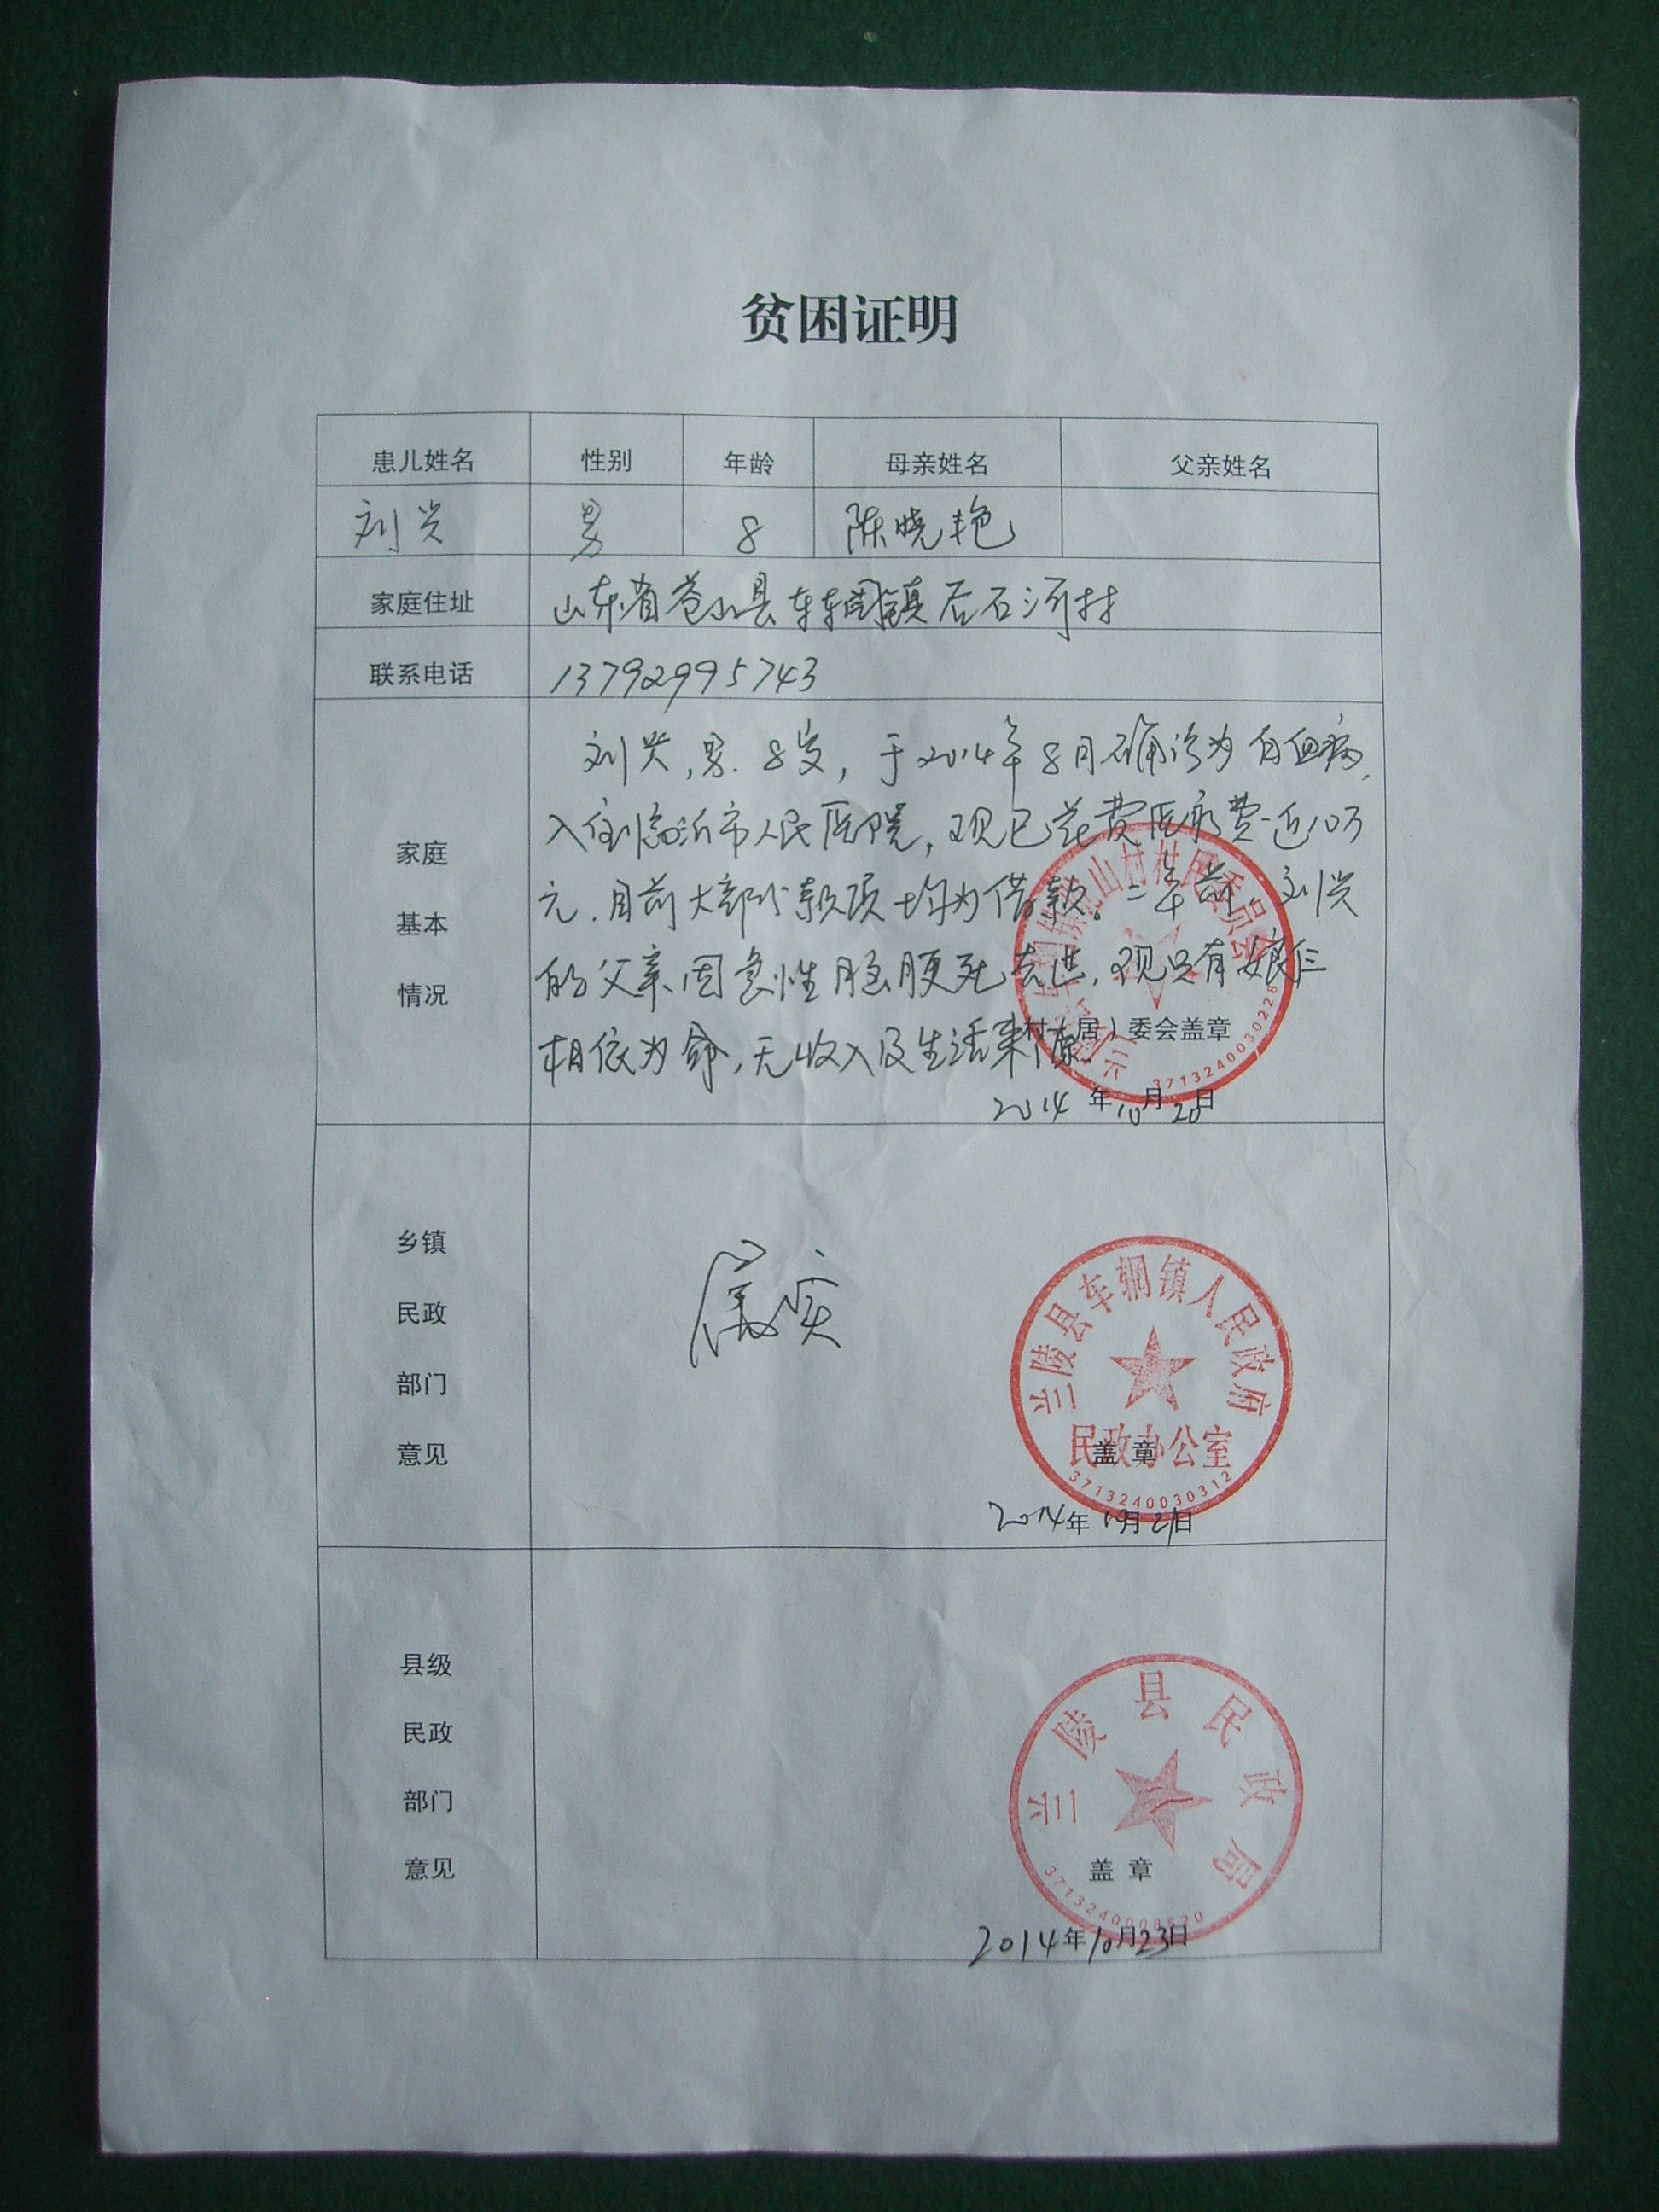 贫困证明
患儿姓名 性别 年龄 母亲姓名 父亲姓名
刘兴 男 8 陈晓艳
家庭住址 山东省苍山县车辋镇后石河村
联系电话 13792995743
家庭
基本
情况
刘兴,男.8岁,于2014年8月确诊为白血病,
入住临沂市人民医院,现已花费医疗费近10万
元.目前大部分款项均为借款。二年前 刘兴
的父亲因急性脑梗死去世,现只有娘仨
相依为命,无收入及生活来源.
村(居)委会盖章
3713240030228
2014年10月20日
乡镇
民政
部门
意见
属实
兰陵县车辋镇人民政府
民政办公室
盖 章
3713240030312
2014年10月21日
县级
民政
部门
意见
兰陵县民政局
盖 章
2014年10月23日